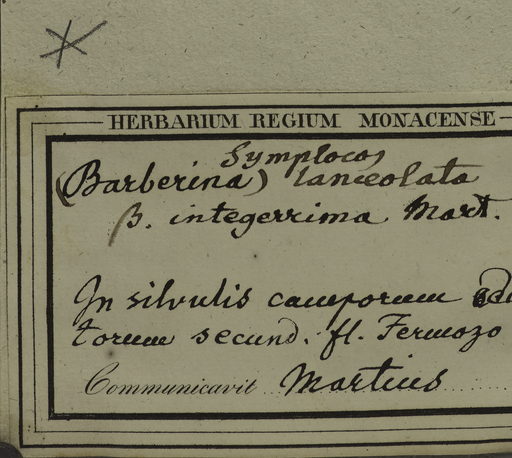 HERBARIUM REGIUM MONACENSE
Symplocos
(Barberina) lanceolata
β. integerrima Mart.
In silvulis camporum edi
torum secund. fl. Fermozo
Communicavit Martius